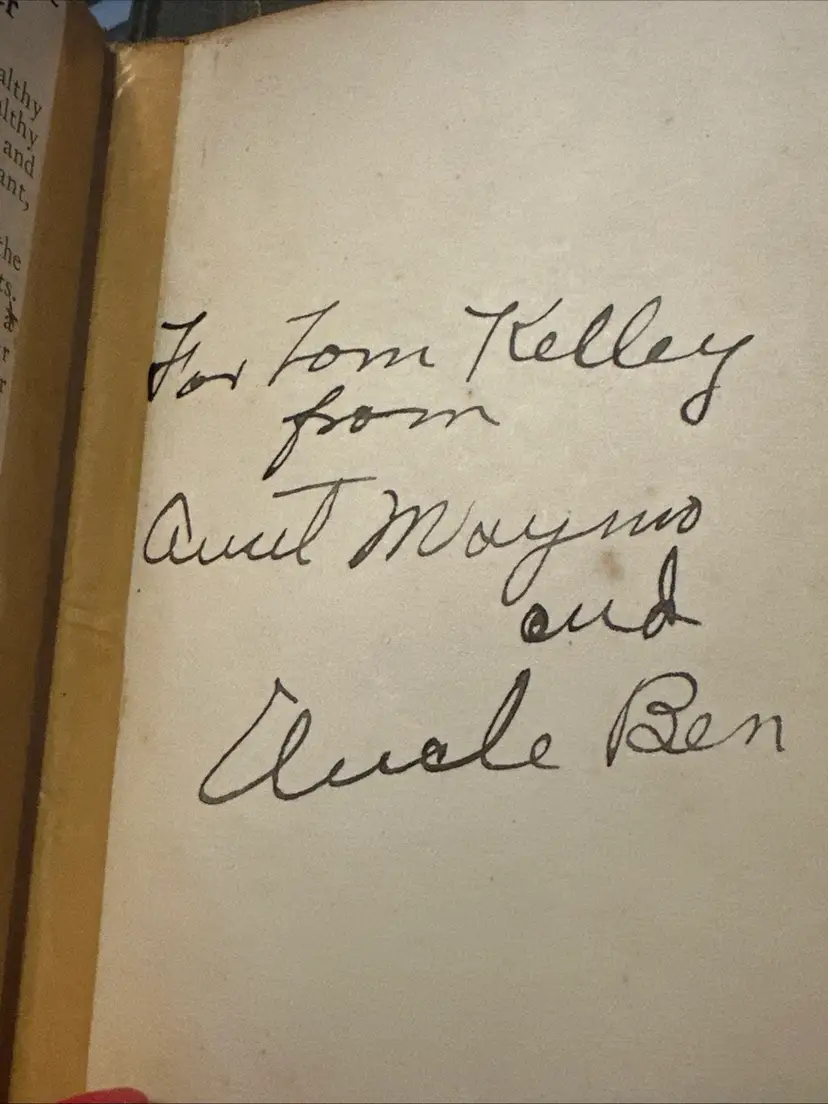 althy
althy
and
ant,
the
ts.
a
r
r
For Tom Kelley
from
Aunt Maymo
and
Uncle Ben